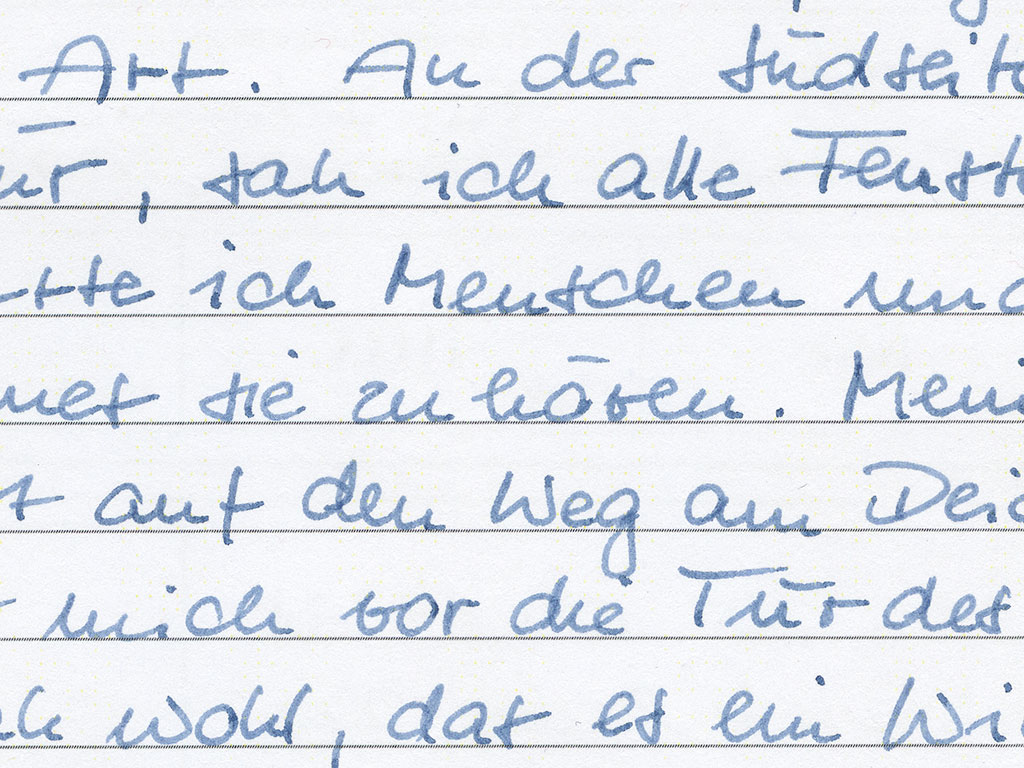 Art. An der Südseite
ür, sah ich alle Fenste
rte ich Menschen und
net sie zu hören. Mein
t auf den Weg am Deic
mich vor die Tür des
ah wohl, das es ein Wi